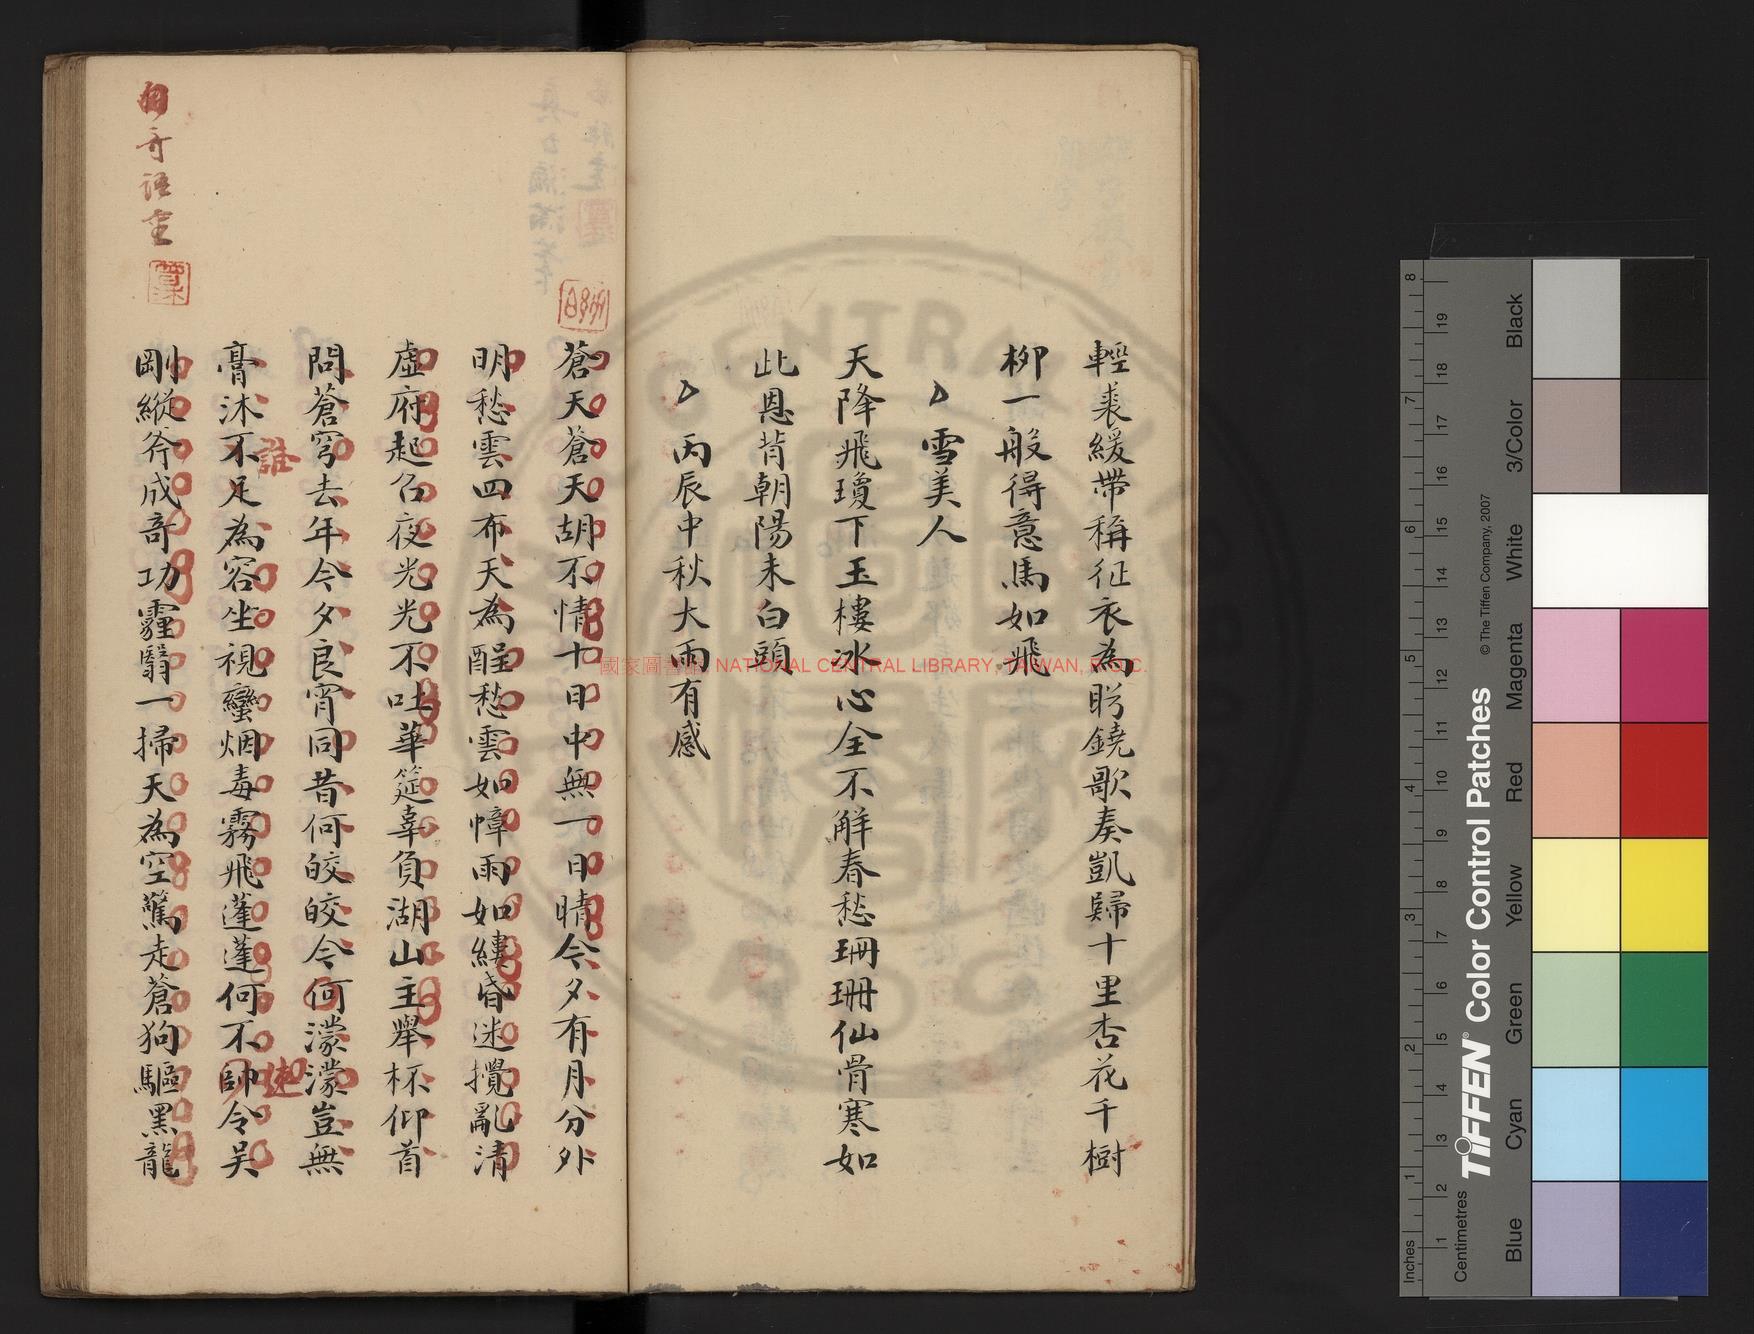 輕裘緩帶稱征衣為眄鐃歌奏凱歸十里杏花千樹
柳一般得意馬如飛
雪美人
天降飛瓊下玉樓冰心全不解春愁珊珊仙骨寒如
此恩背朝陽未白頭
丙辰中秋大雨有感
蒼天蒼天胡不情十日中無一日晴今夕有月分外
明愁雲四布天為醒愁雲如幛雨如縷昏迷攪亂清
虛府起召夜光光不吐華筵辜負湖山主舉杯仰首
問蒼穹去年今夕良宵同昔何皎皎今何濛濛豈無
膏沐不足為容坐視蠻烟毒霧飛蓬蓬何不帥令吳
誰
速
剛縱斧成奇功霾翳一掃天為空驚走蒼狗驅黑龍
奇語
國家圖書館 NATIONAL CENTRAL LIBRARY, TAIWAN, R.O.C.
Inches
Centimetres
TIFFEN® Color Control Patches
© The Tiffen Company, 2007
Blue
Cyan
Green
Yellow
Red
Magenta
White
3/Color
Black
1 2 3 4 5 6 7 8
1 2 3 4 5 6 7 8 9 10 11 12 13 14 15 16 17 18 19